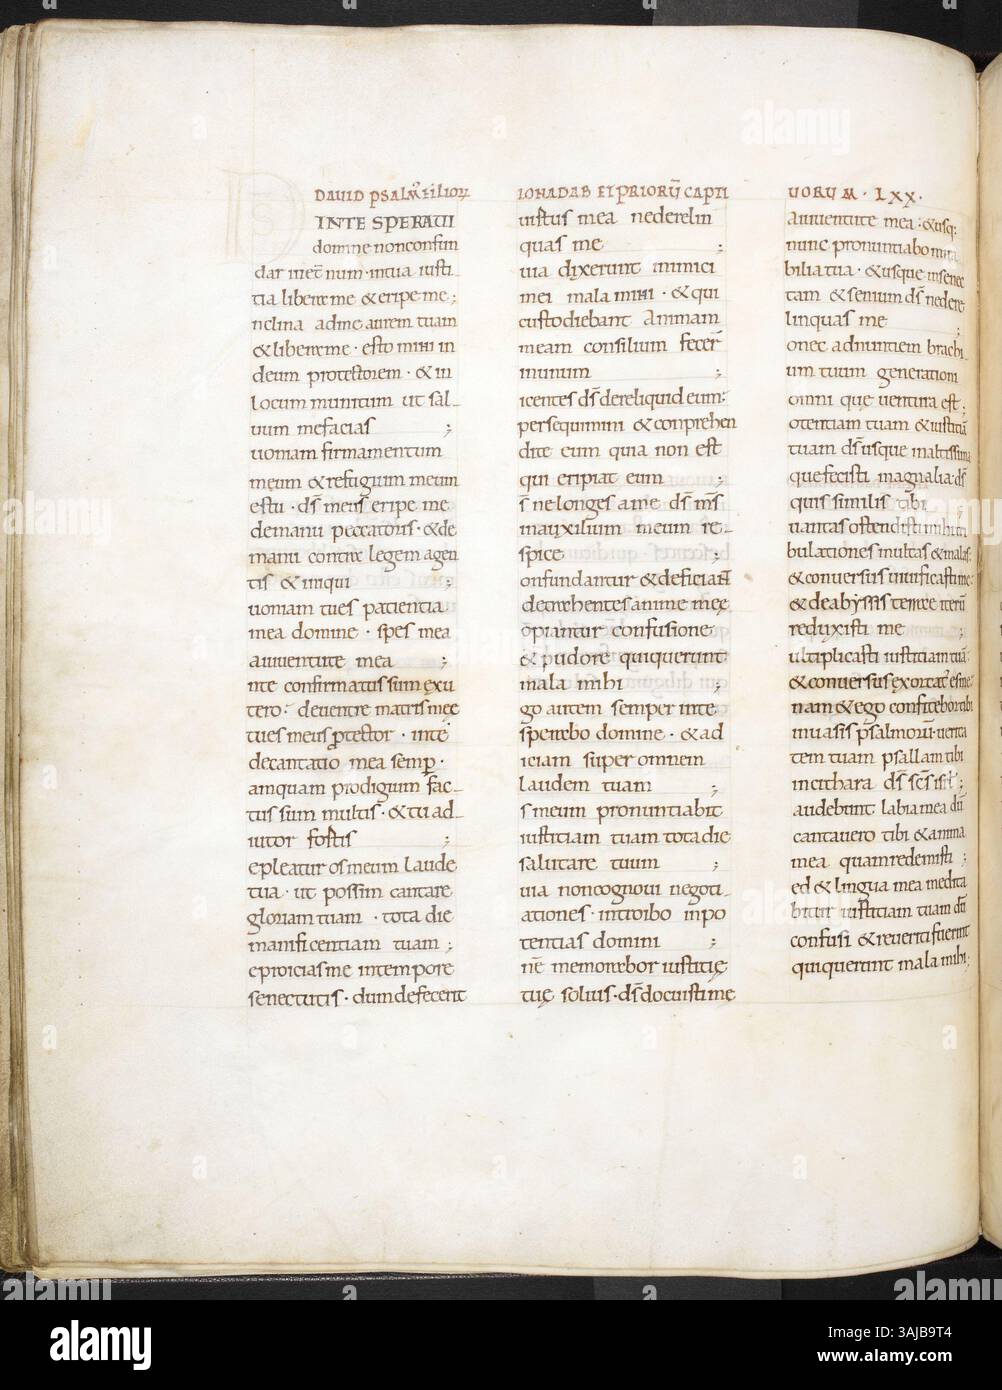 DAVID PSALM̄ FILIORŪ IONADAB ET PRIORŪ CAPTIUORUM · LXX ·
INTE SPERAVI
domine nonconfun
dar inet̄num · intua iusti
tia libera me & eripe me;
nclina adme aurem tuam
& libera me · esto mihi in
deum protectorem · & in
locum munitum ut sal
uum mefacias ;
uoniam firmamentum
meum & refugium meum
es tu · dś meus eripe me
demanu peccatoris · & de
manu contra legem agen
tis & iniqui ;
uoniam tues patientia
mea domine · spes mea
aiuuentute mea ;
nte confirmatus sum exu
tero · deuentre matris meę
tues meus ꝓtector · inte
decantatio mea semꝑ ·
amquam prodigium fac
tus sum multis · & tu ad
iutor fortis ;
epleatur os meum laude
tua · ut possim cantare
gloriam tuam · tota die
manificentiam tuam ;
eproicias me intempore
senectutis · dum defecerit
uirtus mea nederelin
quas me ;
uia dixerunt inimici
mei mala mihi · & qui
custodiebant animam
meam consilium fecer̄
inunum ;
icentes dś dereliquid eum:
persequimini & conprehen
dite eum quia non est
qui eripiat eum ;
ś ne longes ame · dś mś
inauxilium meum re
spice ;
onfundantur & deficiant
detrahentes anime meę
opiantur confusione
& pudore quiquerunt
mala mihi ;
go autem semper inte
sperabo domine · & ad
iciam super omnem
laudem tuam ;
s meum pronuntiabit
iustitiam tuam tota die
salutare tuum ;
uia noncognoui negoti
ationes · introibo inpo
tentias domini ;
nē memorabor iustitię
tuę solius · dś docuisti me
aiuuentute mea · & usq:
nunc pronuntiabo mira
bilia tua · & usque insenec
tam & senium dś nedere
linquas me ;
onec adnuntiem brachi
um tuum generationi
omni que uentura est ;
otentiam tuam & iustitiā
tuam dś usque inaltissima
que fecisti magnalia · dś
quis similis tibi ;
uantas ostendisti mihi tri
bulationes multas & malas:
& conuersus uiuificasti me:
& deabyssis terrae iterū
reduxisti me ;
ultiplicasti iustitiam tuā:
& conuersus exortat̄ es me:
nam & ego confitebor tibi
inuasis psalmorū · uerita
tem tuam psallam tibi
incithara dś sc̄s isrl̄ ;
audebunt labia mea dū
cantauero tibi & anima
mea quam redemisti ;
ed & lingua mea medita
bitur iustitiam tuam dū
confusi & reueriti fuerint
qui querunt mala mihi ;
alamy
Image ID: 3AJB9T4
www.alamy.com